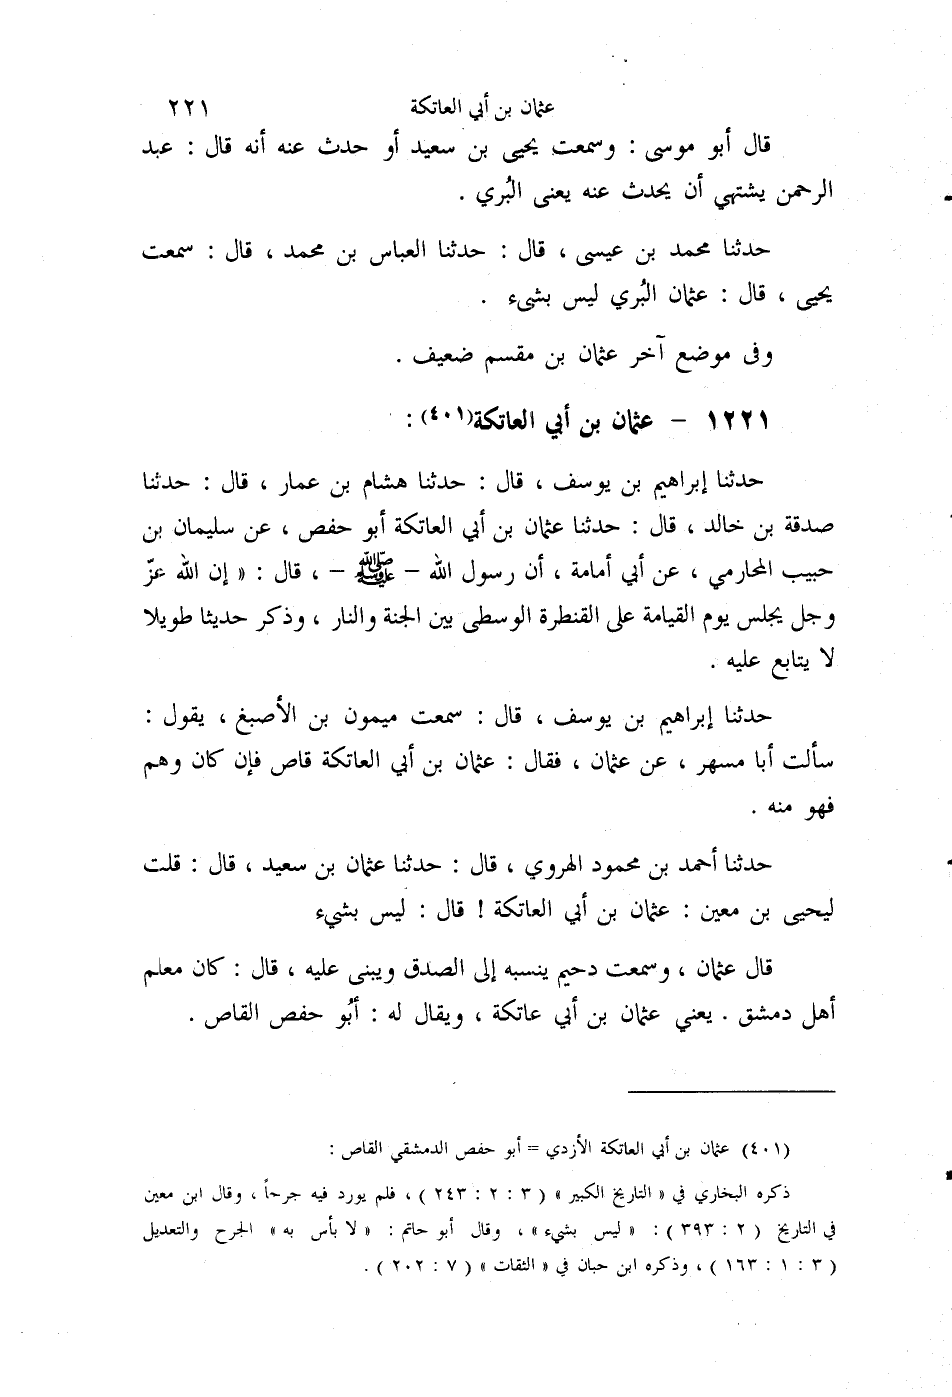 عثمان بن أبي العاتكة ٢٢١
قال أبو موسى : وسمعت يحيى بن سعيد أو حدث عنه أنه قال : عبد
الرحمن يشتهي أن يحدث عنه يعنى البُري .
حدثنا محمد بن عيسى ، قال : حدثنا العباس بن محمد ، قال : سمعت
يحيى ، قال : عثمان البُري ليس بشىء .
وفى موضع آخر عثمان بن مقسم ضعيف .
١٢٢١ - عثمان بن أبي العاتكة(٤٠١) :
حدثنا إبراهيم بن يوسف ، قال : حدثنا هشام بن عمار ، قال : حدثنا
صدقة بن خالد ، قال : حدثنا عثمان بن أبي العاتكة أبو حفص ، عن سليمان بن
حبيب المحارمي ، عن أبي أمامة ، أن رسول الله - ﷺ - ، قال : « إن الله عزّ
وجل يجلس يوم القيامة على القنطرة الوسطى بين الجنة والنار ، وذكر حديثا طويلا
لا يتابع عليه .
حدثنا إبراهيم بن يوسف ، قال : سمعت ميمون بن الأصبغ ، يقول :
سألت أبا مسهر ، عن عثمان ، فقال : عثمان بن أبي العاتكة قاص فإن كان وهم
فهو منه .
حدثنا أحمد بن محمود الهروي ، قال : حدثنا عثمان بن سعيد ، قال : قلت
ليحيى بن معين : عثمان بن أبي العاتكة ! قال : ليس بشيء
قال عثمان ، وسمعت دحيم ينسبه إلى الصدق ويبنى عليه ، قال : كان معلم
أهل دمشق . يعني عثمان بن أبي عاتكة ، ويقال له : أبُو حفص القاص .
(٤٠١) عثمان بن أبي العاتكة الأزدي = أبو حفص الدمشقي القاص :
ذكره البخاري في « التاريخ الكبير » ( ٣ : ٢ : ٢٤٣ ) ، فلم يورد فيه جرحاً ، وقال ابن معين
في التاريخ ( ٢ : ٣٩٣ ) : « ليس بشيء » ، وقال أبو حاتم : « لا بأس به » الجرح والتعديل
( ٣ : ١ : ١٦٣ ) ، وذكره ابن حبان في « الثقات » ( ٧ : ٢٠٢ ) .